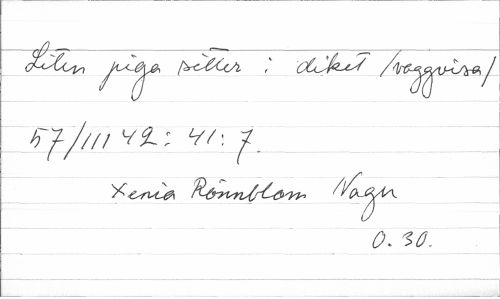 Liten piga sitter i diket /vaggvisa/
57/III 42: 41: 7.
Xenia Rönnblom Nagu
0.30.